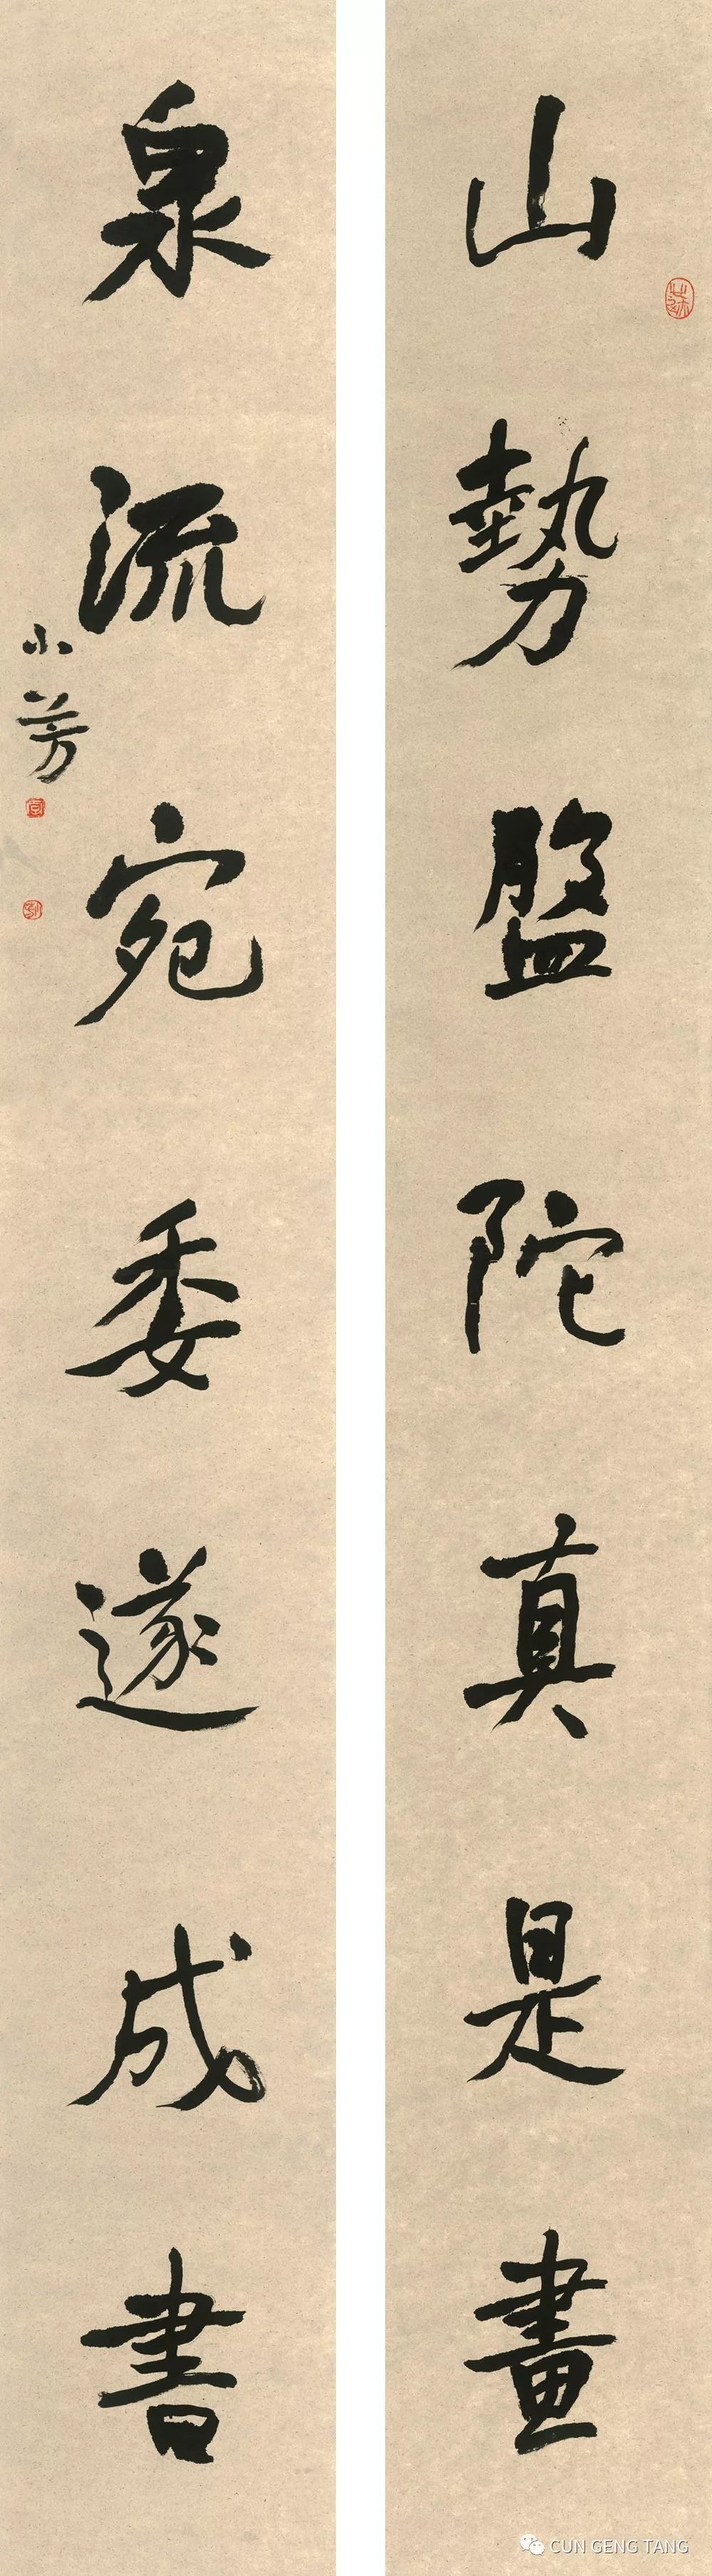 山勢盤陀真是畫
泉流宛委遂成書
小芳
CUN GENG TANG